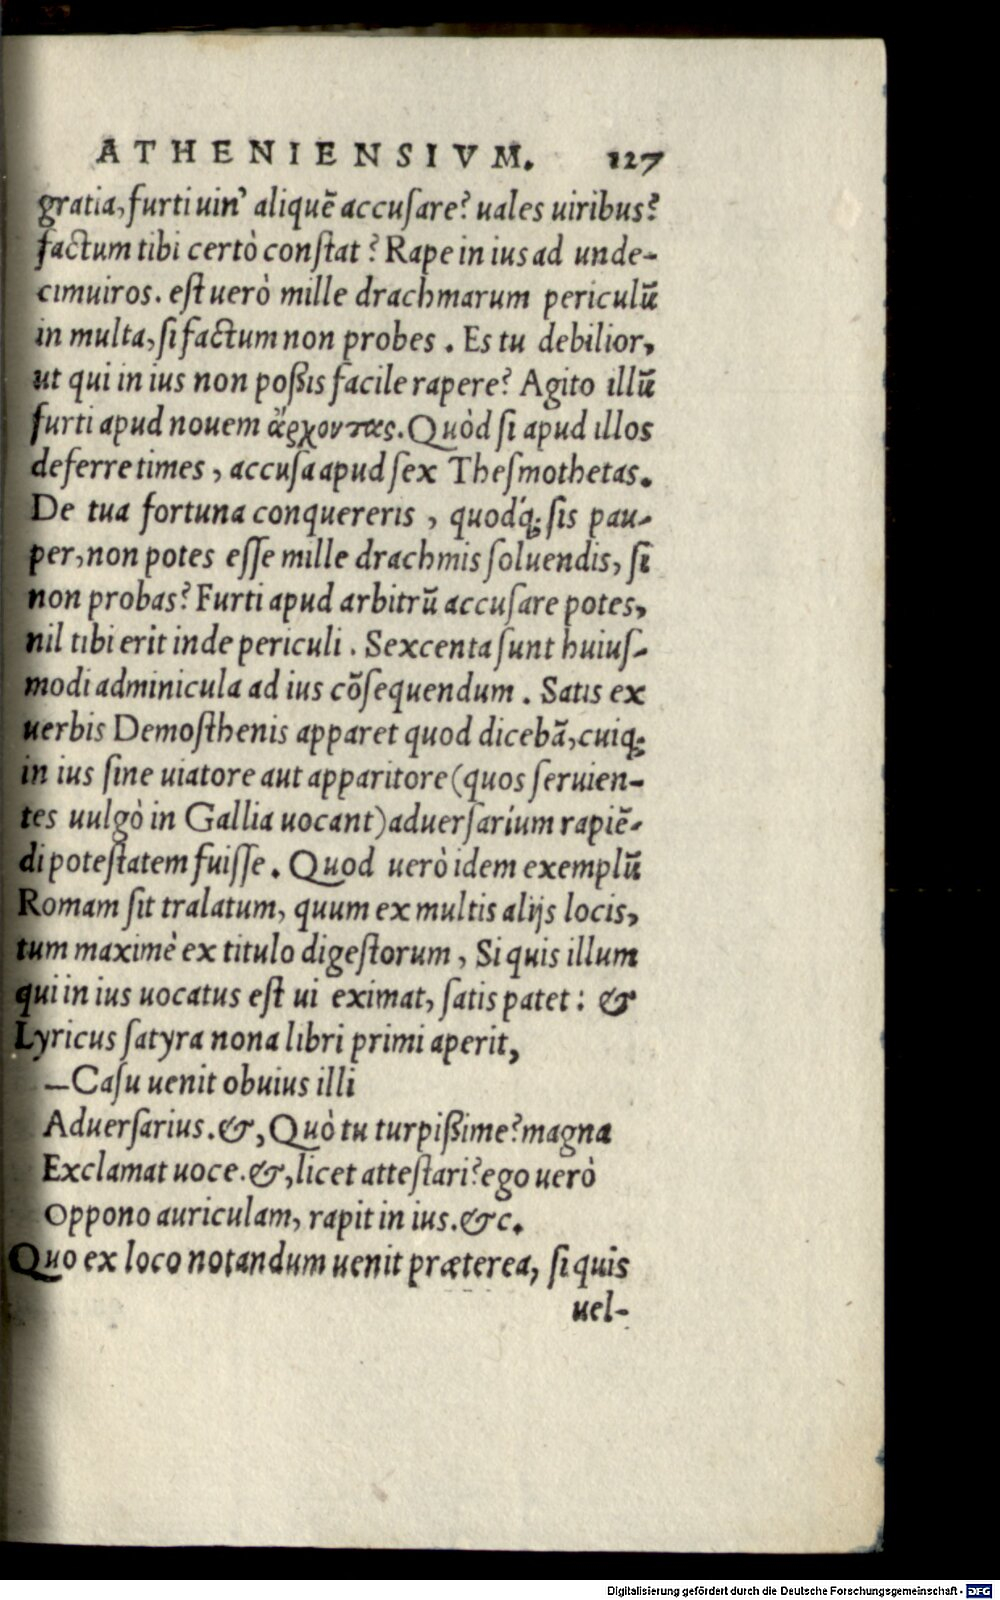 ATHENIENSIVM. 127
gratia, furti uin' aliquẽ accusare? uales uiribus?
factum tibi certò constat? Rape in ius ad unde-
cimuiros. est uerò mille drachmarum periculũ
in multa, si factum non probes. Es tu debilior,
ut qui in ius non poßis facile rapere? Agito illũ
furti apud nouem ἄρχοντας. Quòd si apud illos
deferre times, accusa apud sex Thesmothetas.
De tua fortuna conquereris, quodq́; sis pau-
per, non potes esse mille drachmis soluendis, si
non probas? Furti apud arbitrũ accusare potes,
nil tibi erit inde periculi. Sexcenta sunt huius-
modi adminicula ad ius cõsequendum. Satis ex
uerbis Demosthenis apparet quod dicebã, cuiq;
in ius sine uiatore aut apparitore (quos seruien-
tes uulgò in Gallia uocant) aduersarium rapiẽ-
di potestatem fuisse. Quod uerò idem exemplũ
Romam sit tralatum, quum ex multis alijs locis,
tum maximè ex titulo digestorum, Si quis illum
qui in ius uocatus est ui eximat, satis patet: &
Lyricus satyra nona libri primi aperit,
—Casu uenit obuius illi
Aduersarius. &, Quò tu turpißime? magna
Exclamat uoce. &, licet attestari? ego uerò
Oppono auriculam, rapit in ius. &c.
Quo ex loco notandum uenit præterea, si quis
uel-
Digitalisierung gefördert durch die Deutsche Forschungsgemeinschaft - DFG